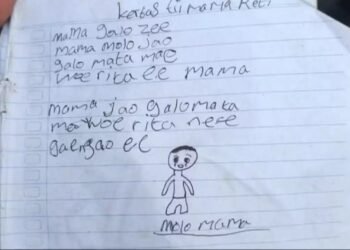 kertas tii mama reti
mama galo zee
mama molo jao
galo mata mae
woe rita ee mama
mama jao galo mata
mae woe rita nee
gaengao ee
molo mama